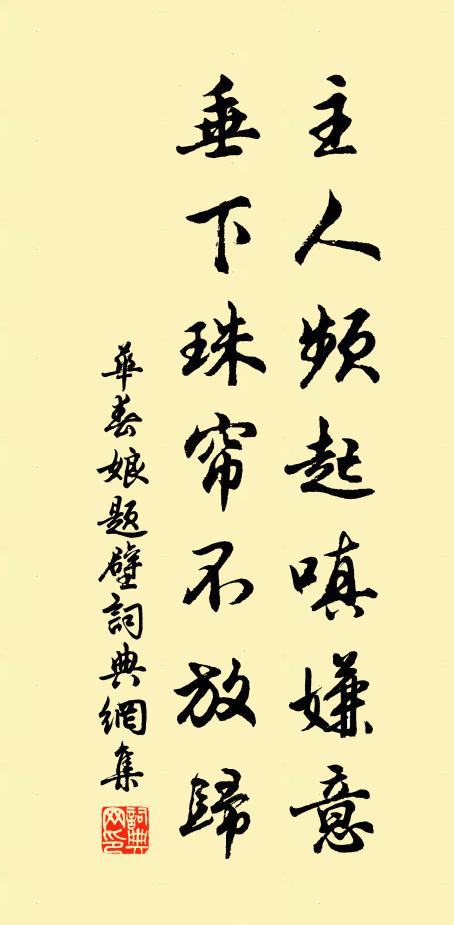 主人频起嗔嫌意
垂下珠帘不放歸
華春娘題壁詞典網集
詞典
网印